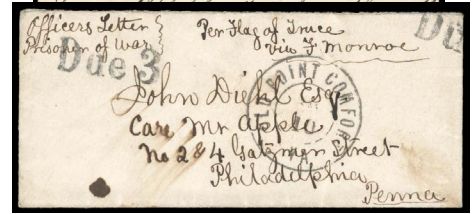 Officers Letter
Prisoner of War
Per Flag of Truce
via F. Monroe
Due 3
Du
POINT COMFORT
John Diehl Esq
Care Mr Apple
No 284 Street
Philadelphia
Penna